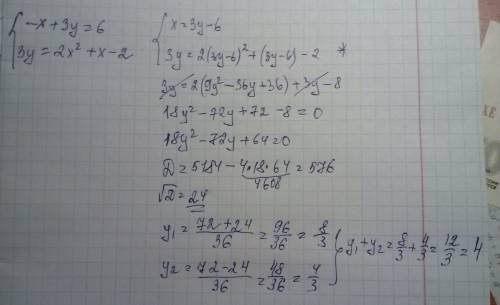 { -x + 3y = 6
3y = 2x² + x - 2
{ x = 3y - 6
3y = 2(3y-6)² + (3y-6) - 2 *
3y = 2(9y² - 36y + 36) + 3y - 8
18y² - 72y + 72 - 8 = 0
18y² - 72y + 64 = 0
D = 5184 - 4·18·64 = 576
4608
√D = 24
y₁ = 72+24/36 = 96/36 = 8/3
y₂ = 72-24/36 = 48/36 = 4/3
} y₁ + y₂ = 8/3 + 4/3 = 12/3 = 4